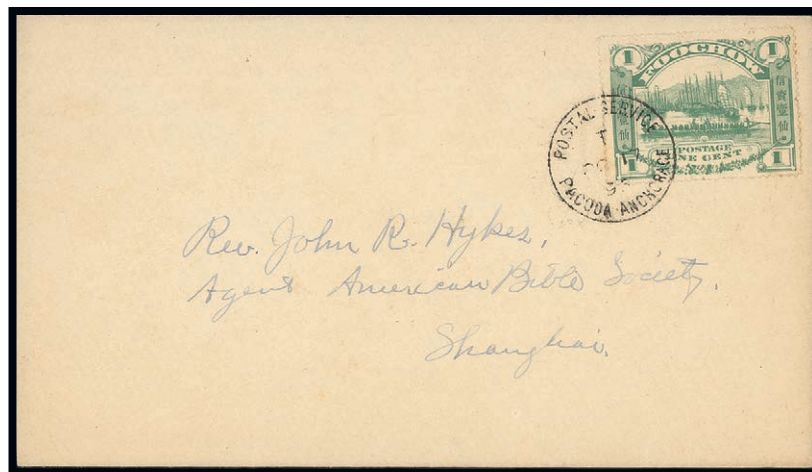 1 FOOCHOW 1
POSTAGE
ONE CENT
1 1
POSTAL SERVICE
PAGODA ANCHORAGE
Rev. John R. Hykes,
Agent American Bible Society,
Shanghai.